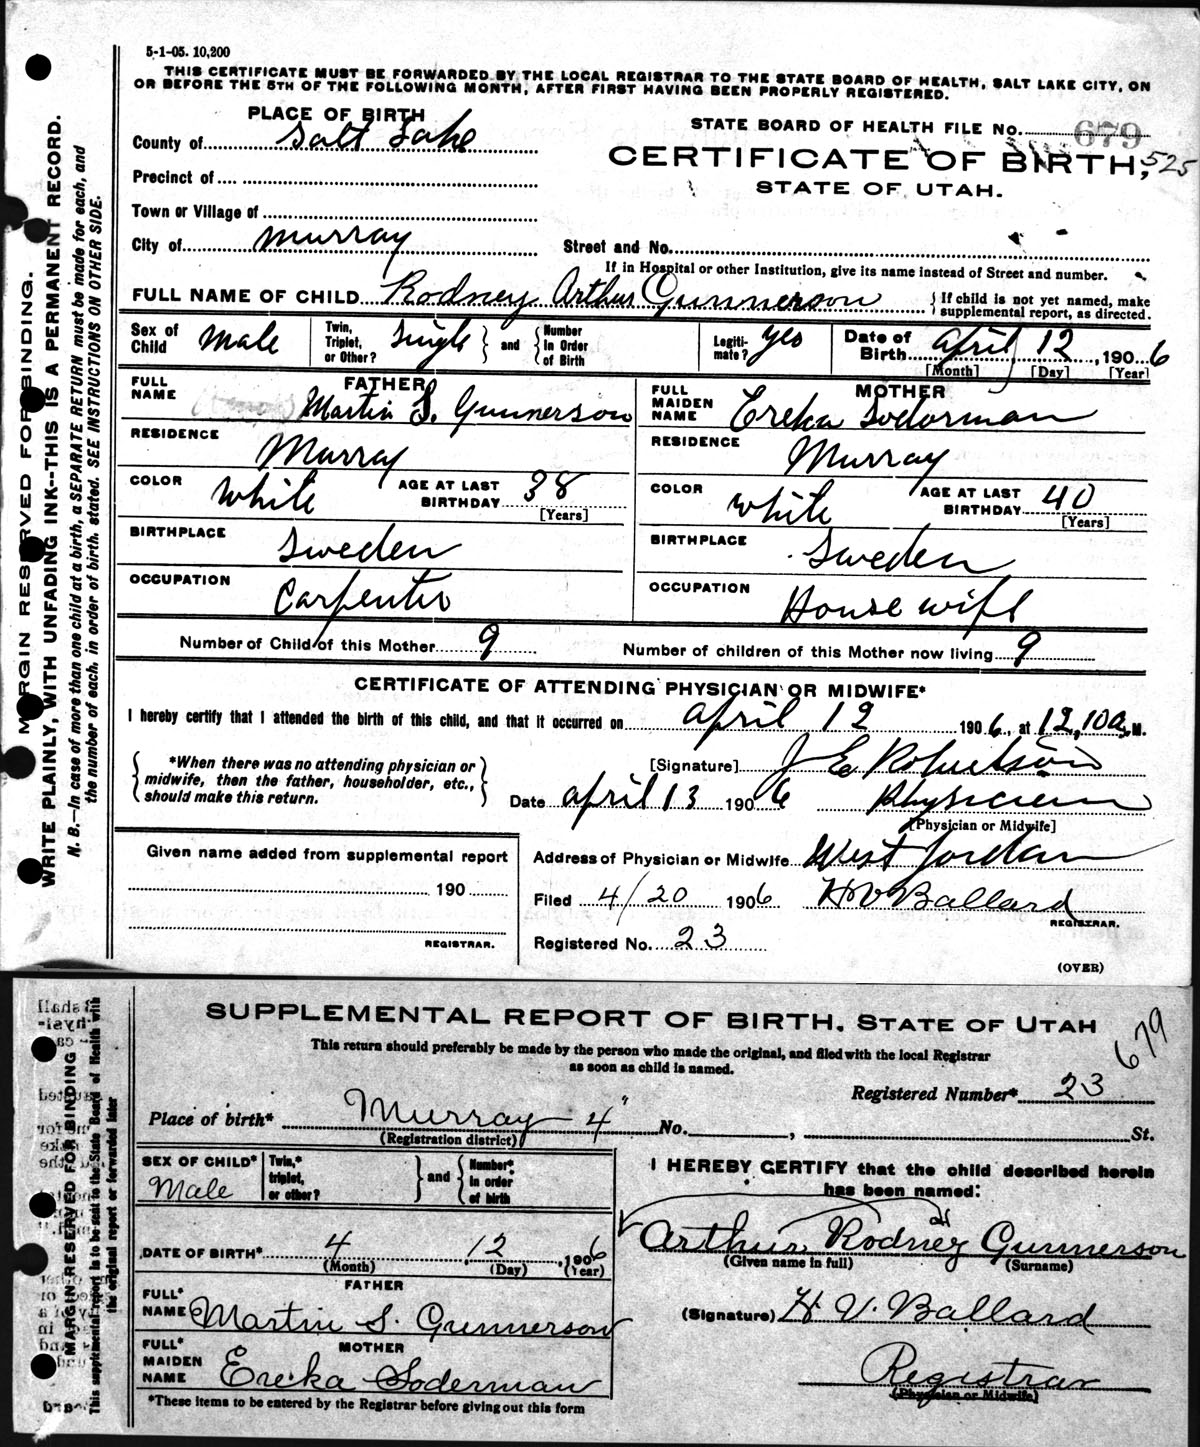 5-1-05. 10,200
THIS CERTIFICATE MUST BE FORWARDED BY THE LOCAL REGISTRAR TO THE STATE BOARD OF HEALTH, SALT LAKE CITY, ON
OR BEFORE THE 5TH OF THE FOLLOWING MONTH, AFTER FIRST HAVING BEEN PROPERLY REGISTERED.
PLACE OF BIRTH
County of Salt Lake
STATE BOARD OF HEALTH FILE No. 679
CERTIFICATE OF BIRTH, 525
STATE OF UTAH.
Precinct of
Town or Village of
City of Murray
Street and No.
If in Hospital or other Institution, give its name instead of Street and number.
FULL NAME OF CHILD Rodney Arthur Gunnerson { If child is not yet named, make supplemental report, as directed.
Sex of Child Male Twin, Triplet, or Other? Single } and { Number In Order of Birth Legiti-mate? yes Date of Birth April 12, 1906
[Month] [Day] [Year]
FATHER
FULL NAME Martin S. Gunnerson
RESIDENCE Murray
COLOR White AGE AT LAST BIRTHDAY 38
[Years]
BIRTHPLACE Sweden
OCCUPATION Carpenter
MOTHER
FULL MAIDEN NAME Ereka Soderman
RESIDENCE Murray
COLOR White AGE AT LAST BIRTHDAY 40
[Years]
BIRTHPLACE Sweden
OCCUPATION House wife
Number of Child of this Mother 9 Number of children of this Mother now living 9
CERTIFICATE OF ATTENDING PHYSICIAN OR MIDWIFE*
I hereby certify that I attended the birth of this child, and that it occurred on April 12 1906, at 12,10 a. M.
{ *When there was no attending physician or midwife, then the father, householder, etc., should make this return. }
[Signature] J E Robertson
Date April 13 1906 Physician
[Physician or Midwife]
Given name added from supplemental report
190
REGISTRAR.
Address of Physician or Midwife West Jordan
Filed 4/20 1906 H V Ballard
REGISTRAR.
Registered No. 23
(OVER)
MARGIN RESERVED FOR BINDING.
WRITE PLAINLY, WITH UNFADING INK--THIS IS A PERMANENT RECORD.
N. B.—In case of more than one child at a birth, a SEPARATE RETURN must be made for each, and
the number of each, in order of birth, stated. SEE INSTRUCTIONS ON OTHER SIDE.
SUPPLEMENTAL REPORT OF BIRTH, STATE OF UTAH
This return should preferably be made by the person who made the original, and filed with the local Registrar
as soon as child is named.
679
Registered Number* 23
Place of birth* Murray 4" No. , St.
(Registration district)
SEX OF CHILD* Male Twin,* triplet, or other? } and { Number* in order of birth
DATE OF BIRTH* 4 12, 1906
(Month) (Day) (Year)
FATHER
FULL* NAME Martin S. Gunnerson
MOTHER
FULL* MAIDEN NAME Ereka Soderman
*These items to be entered by the Registrar before giving out this form
I HEREBY CERTIFY that the child described herein
has been named:
Arthur Rodney Gunnerson
(Given name in full) (Surname)
(Signature) H. V. Ballard
Registrar
(Physician or Midwife)
MARGIN RESERVED FOR BINDING
This supplemental report is to be sent to the State Board of Health with
the original report or forwarded later